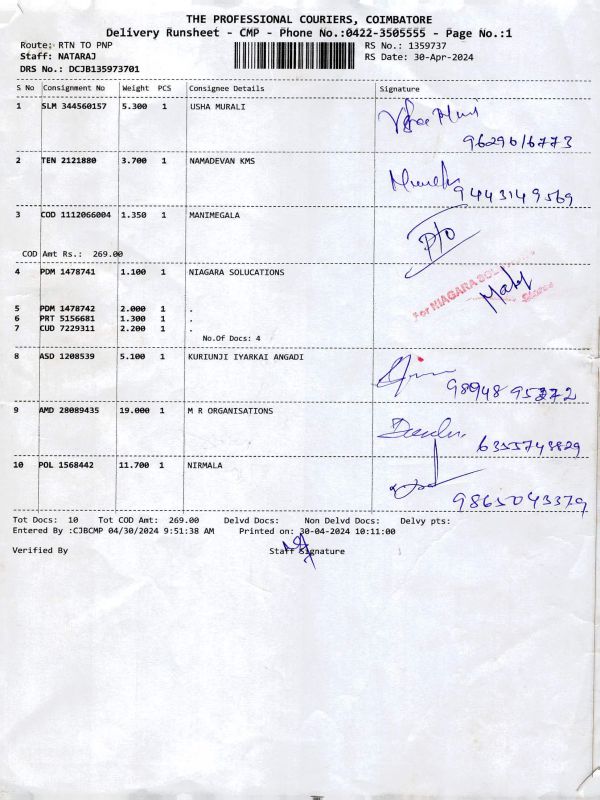 THE PROFESSIONAL COURIERS, COIMBATORE
Delivery Runsheet - CMP - Phone No.:0422-3505555 - Page No.:1
Route: RTN TO PNP RS No.: 1359737
Staff: NATARAJ RS Date: 30-Apr-2024
DRS No.: DCJB135973701
S No Consignment No Weight PCS Consignee Details Signature
1 SLM 344560157 5.300 1 USHA MURALI
9629016773
2 TEN 2121880 3.700 1 NAMADEVAN KMS
9443149569
3 COD 1112066004 1.350 1 MANIMEGALA
P/O
COD Amt Rs.: 269.00
4 PDM 1478741 1.100 1 NIAGARA SOLUCATIONS
For NIAGARA
5 PDM 1478742 2.000 1 .
6 PRT 5156681 1.300 1 .
7 CUD 7229311 2.200 1 .
No.Of Docs: 4
8 ASD 1208539 5.100 1 KURIUNJI IYARKAI ANGADI
9 AMD 28089435 19.000 1 M R ORGANISATIONS
10 POL 1568442 11.700 1 NIRMALA
9865043379
Tot Docs: 10 Tot COD Amt: 269.00 Delvd Docs: Non Delvd Docs: Delvy pts:
Entered By :CJBCMP 04/30/2024 9:51:38 AM Printed on: 30-04-2024 10:11:00
Verified By Staff Signature